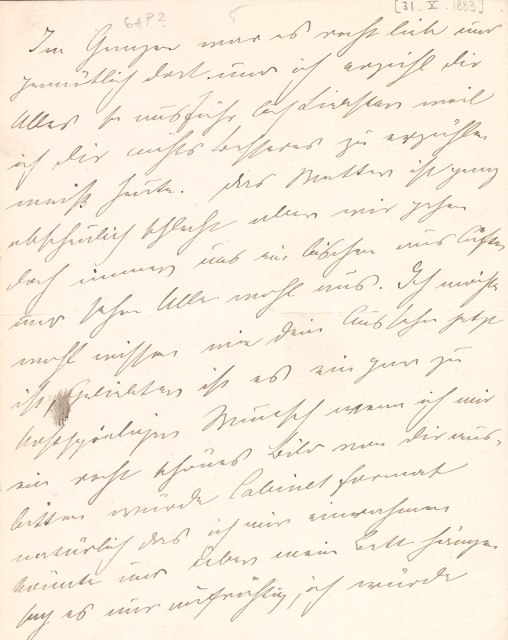 6 AP? 5 [31. X. 1883]
Im Ganzen war es recht lieb und
gemütlich dort und ich erzähl dir
Alles so ausführlich Liebster weil
ich dir nichts besseres zu erzählen
weiß heute. Das Wetter ist ganz
abscheulich schlecht aber wir gehen
doch immer uns ein bischen aus lüften
und sehen Alle wohl aus. Ich möchte
wohl wissen wie dein Aussehn jetzt
ist, Geliebter ist es ein gar zu
kostspieliger Wunsch wenn ich mir
ein recht schönes Bild von dir aus-
bitten würde Cabinetformat
natürlich das ich mir einrahmen
könnte und über mein Bett hängen
sag es mir aufrichtig, ich würde